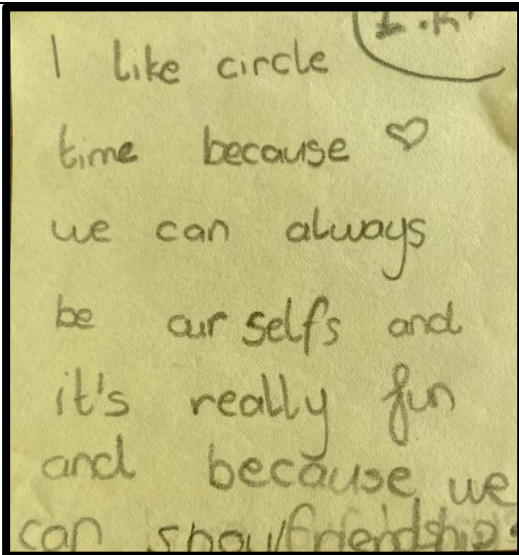 I like circle
time because ♡
we can always
be our selfs and
it's really fun
and because we
can show friendship